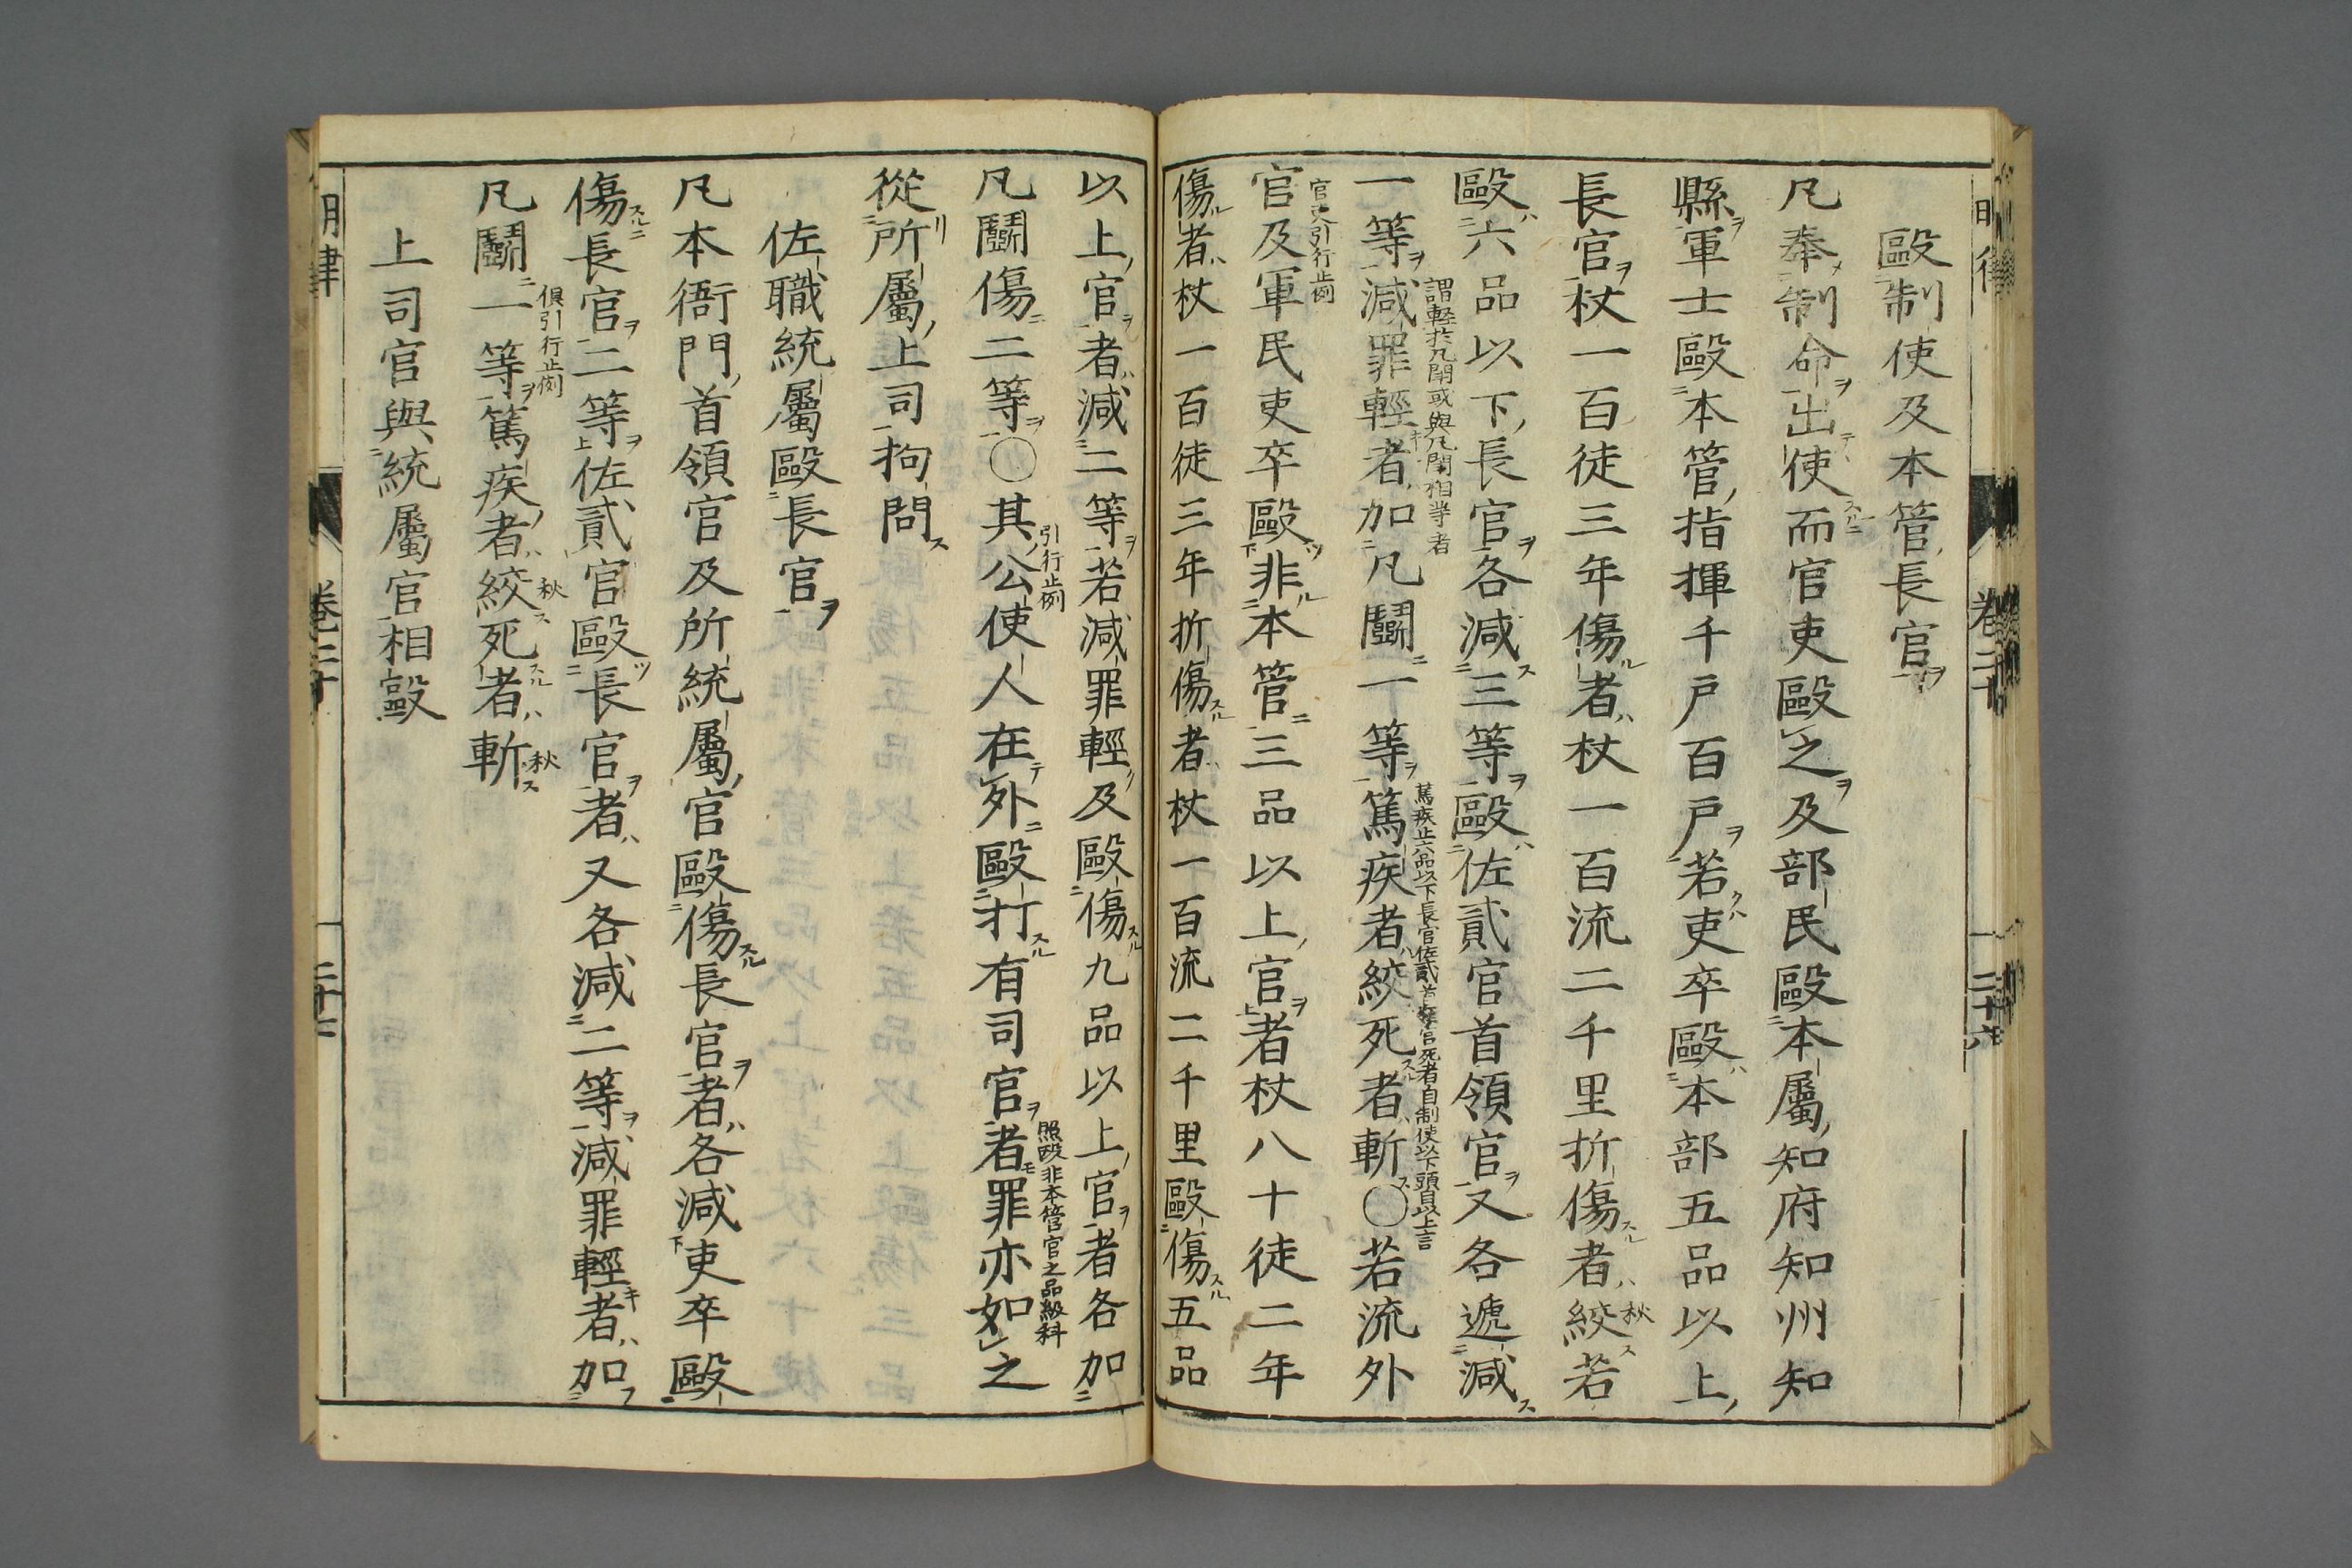 明律 卷二十 二十六
毆制使及本管長官
凡奉制命出使而官吏毆之及部民毆本屬知府知州知
縣軍士毆本管指揮千戶百戶若吏卒毆本部五品以上
長官杖一百徒三年傷者杖一百流二千里折傷者絞秋若
毆六品以下長官各減三等毆佐貳官首領官又各遞減
謂輕於凡鬪或與凡鬪相等者
一等減罪輕者加凡鬪一等篤疾者絞死者斬〇若流外
篤疾止六品以下長官佐貳首領官死者自制使以下頭目以上言
官吏引行止例
官及軍民吏卒毆非本管三品以上官者杖八十徒二年
傷者杖一百徒三年折傷者杖一百流二千里毆傷五品
以上官者減二等若減罪輕及毆傷九品以上官者各加
凡鬪傷二等〇其公使人在外毆打有司官者罪亦如之
引行止例
照毆非本管官之品級科
從所屬上司拘問
佐職統屬毆長官
凡本衙門首領官及所統屬官毆傷長官者各減吏卒毆
傷長官二等佐貳官毆長官者又各減二等減罪輕者加
俱引行止例
凡鬪一等篤疾者絞秋死者斬秋
上司官與統屬官相毆
明律 卷二十 二十七